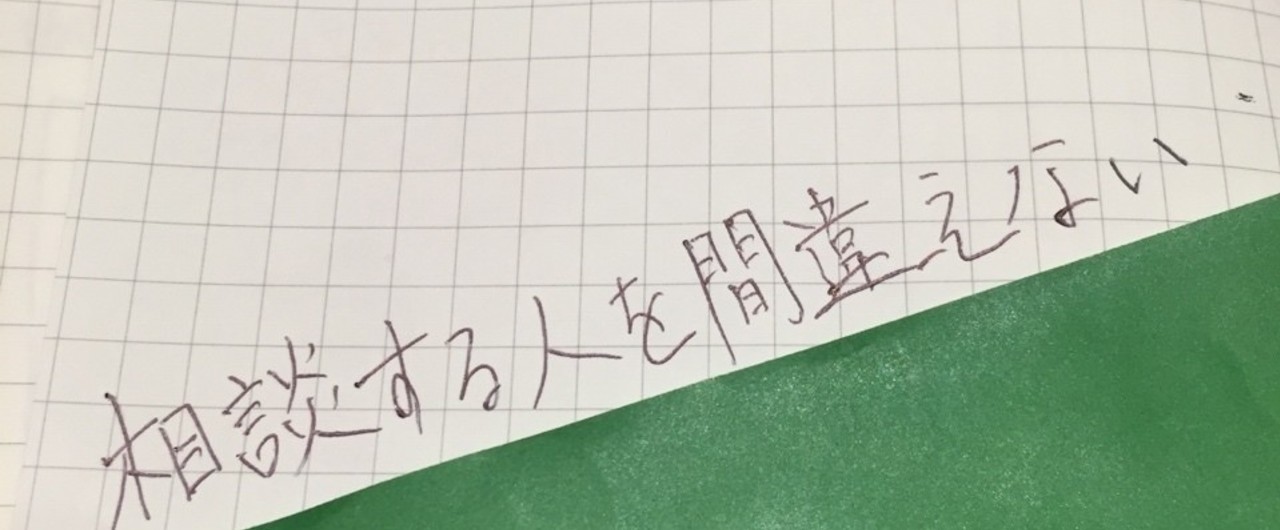 相談する人を間違えない